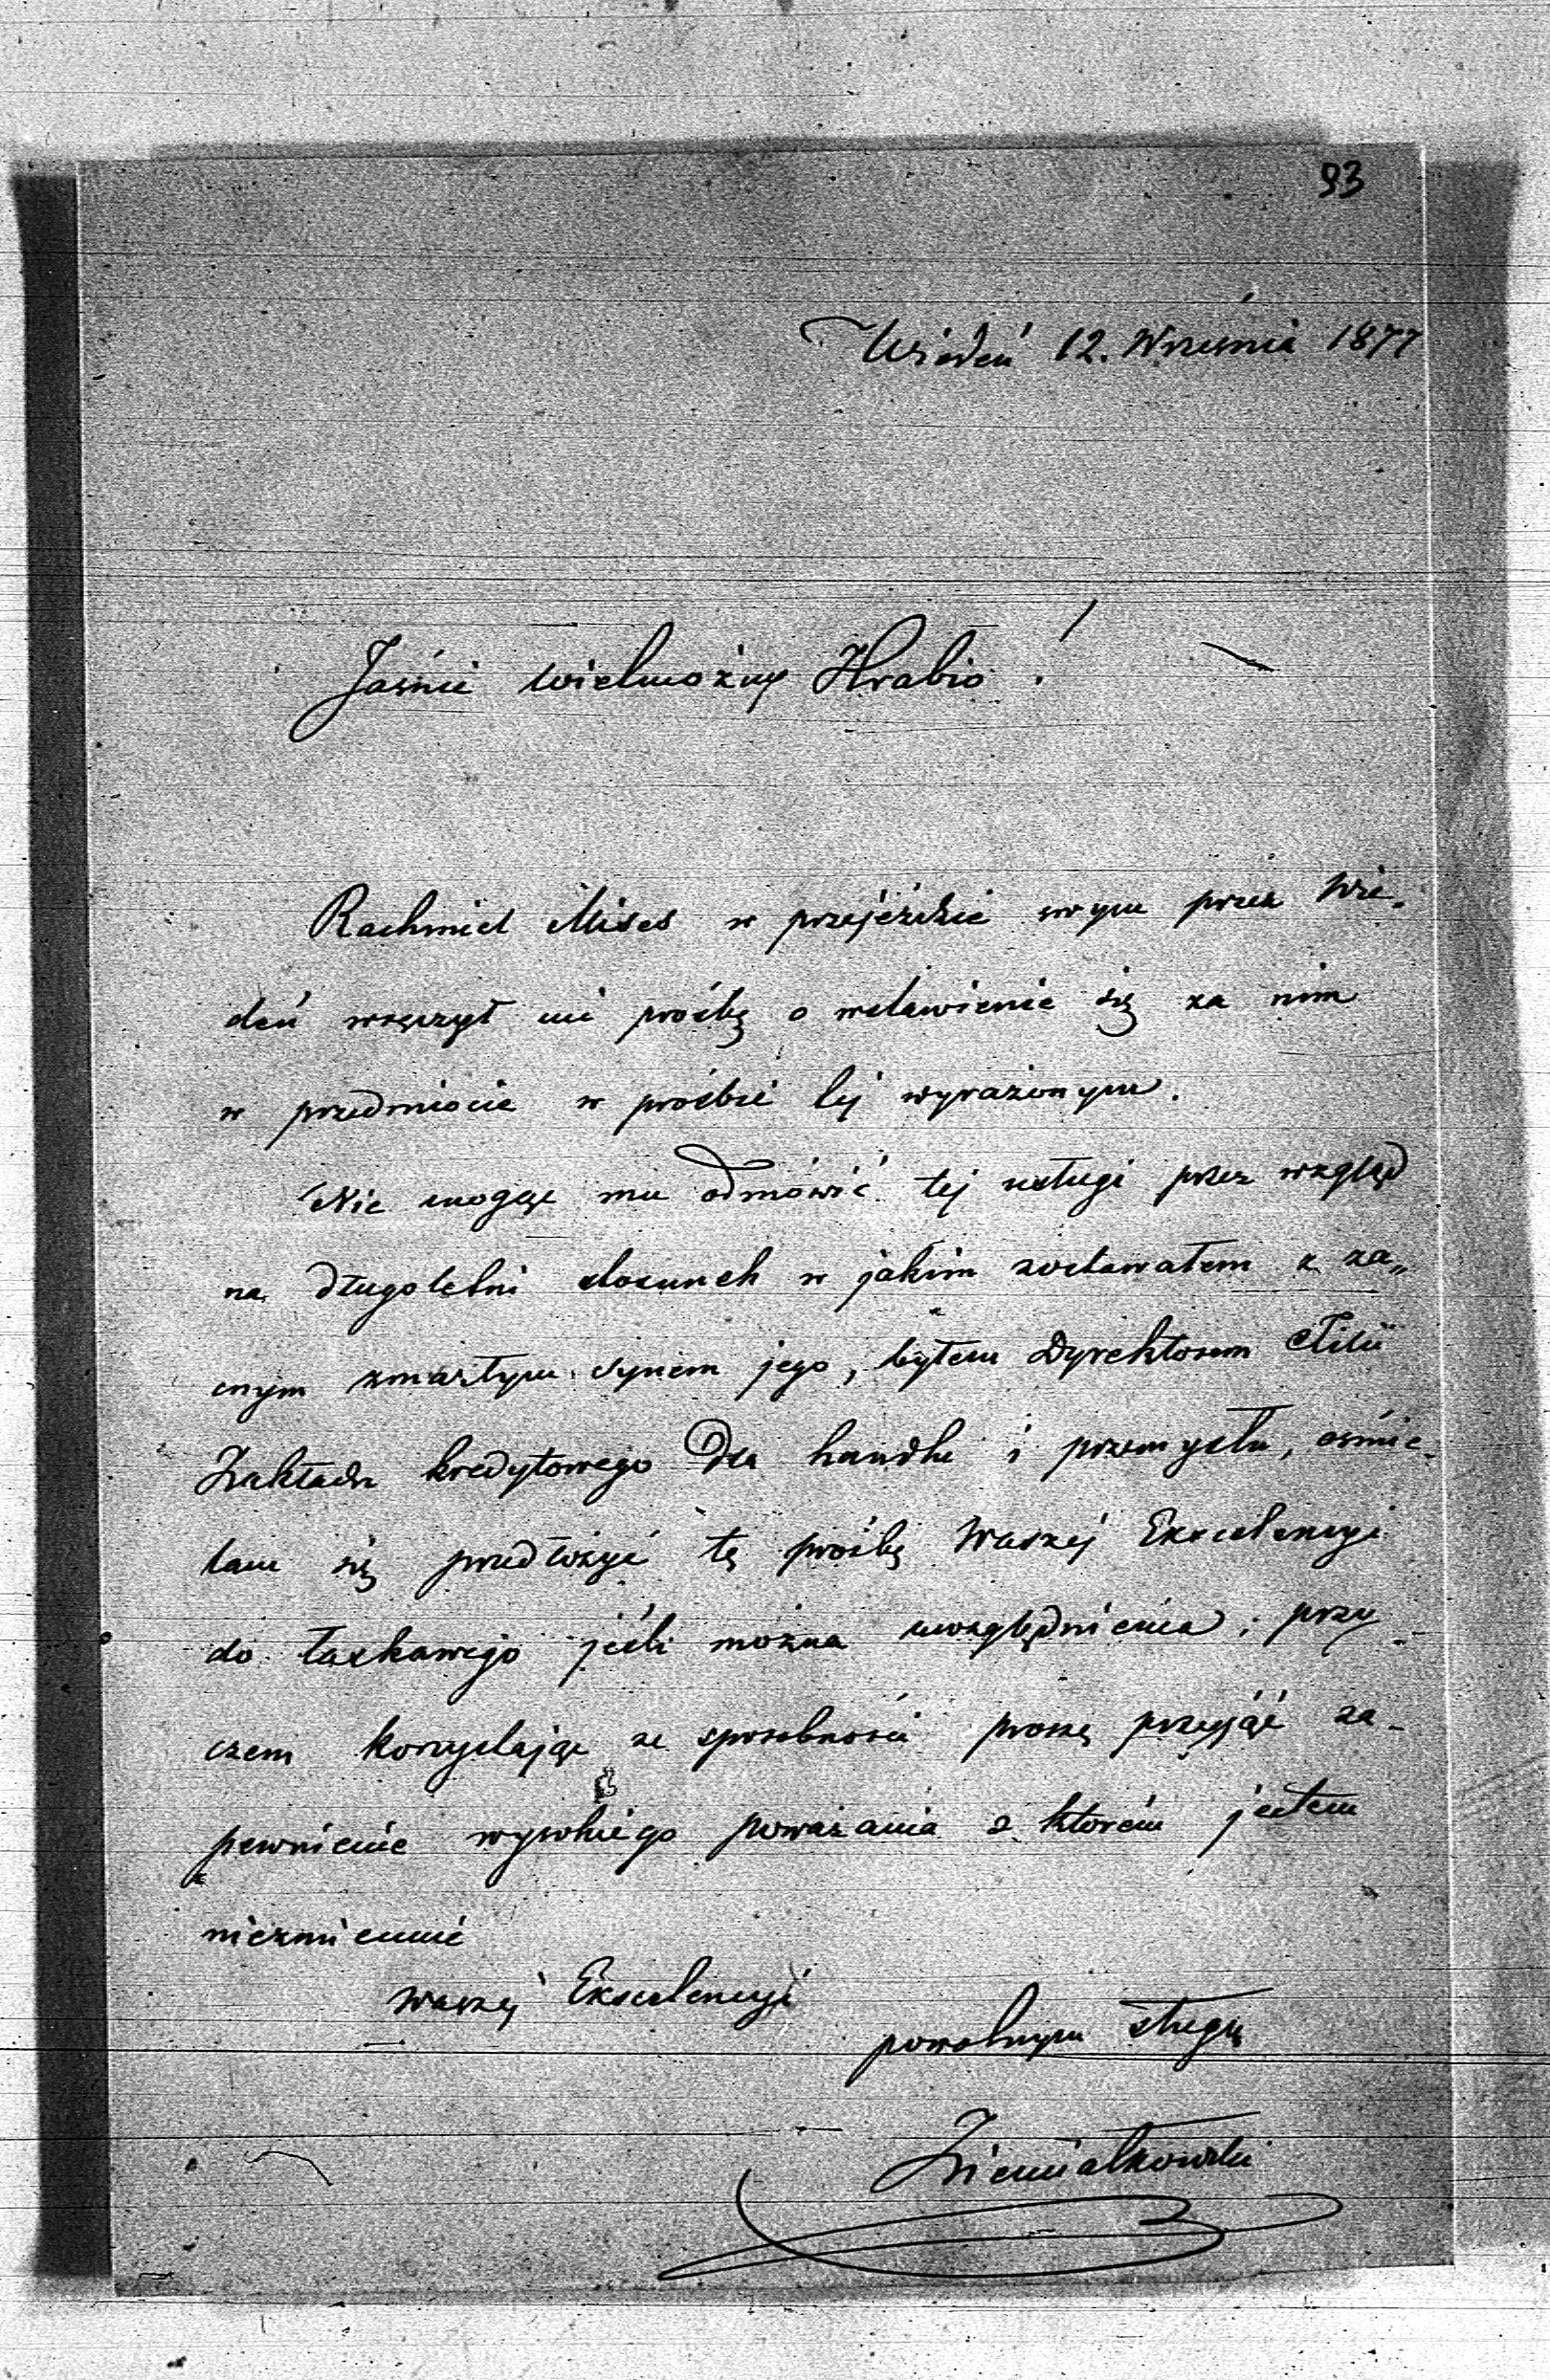 93
Wiedeń 12. Września 1877
Jaśnie Wielmożny Hrabio!
Rachmiel Mises w przejeździe swym przez Wie-
deń wręczył mi prośbę o wstawienie się za nim
w przedmiocie w prośbie tej wyrażonym.
Nie mogąc mu odmówić tej usługi przez wzgląd
na długoletni stosunek w jakim zostawałem z za„
cnym zmarłym synem jego, byłem Dyrektorem Filii
Zakładu kredytowego dla handlu i przemysłu, ośmie-
lam się przedłożyć tę prośbę Waszej Excelencyi
do łaskawego jeśli można uwzględnienia; przy-
czem korzystając ze sposobności proszę przyjąć za-
pewnienie wysokiego poważania z którem jestem
niezmiennie
Waszej Excelencyi
powolnym sługą
Ziemiałkowski